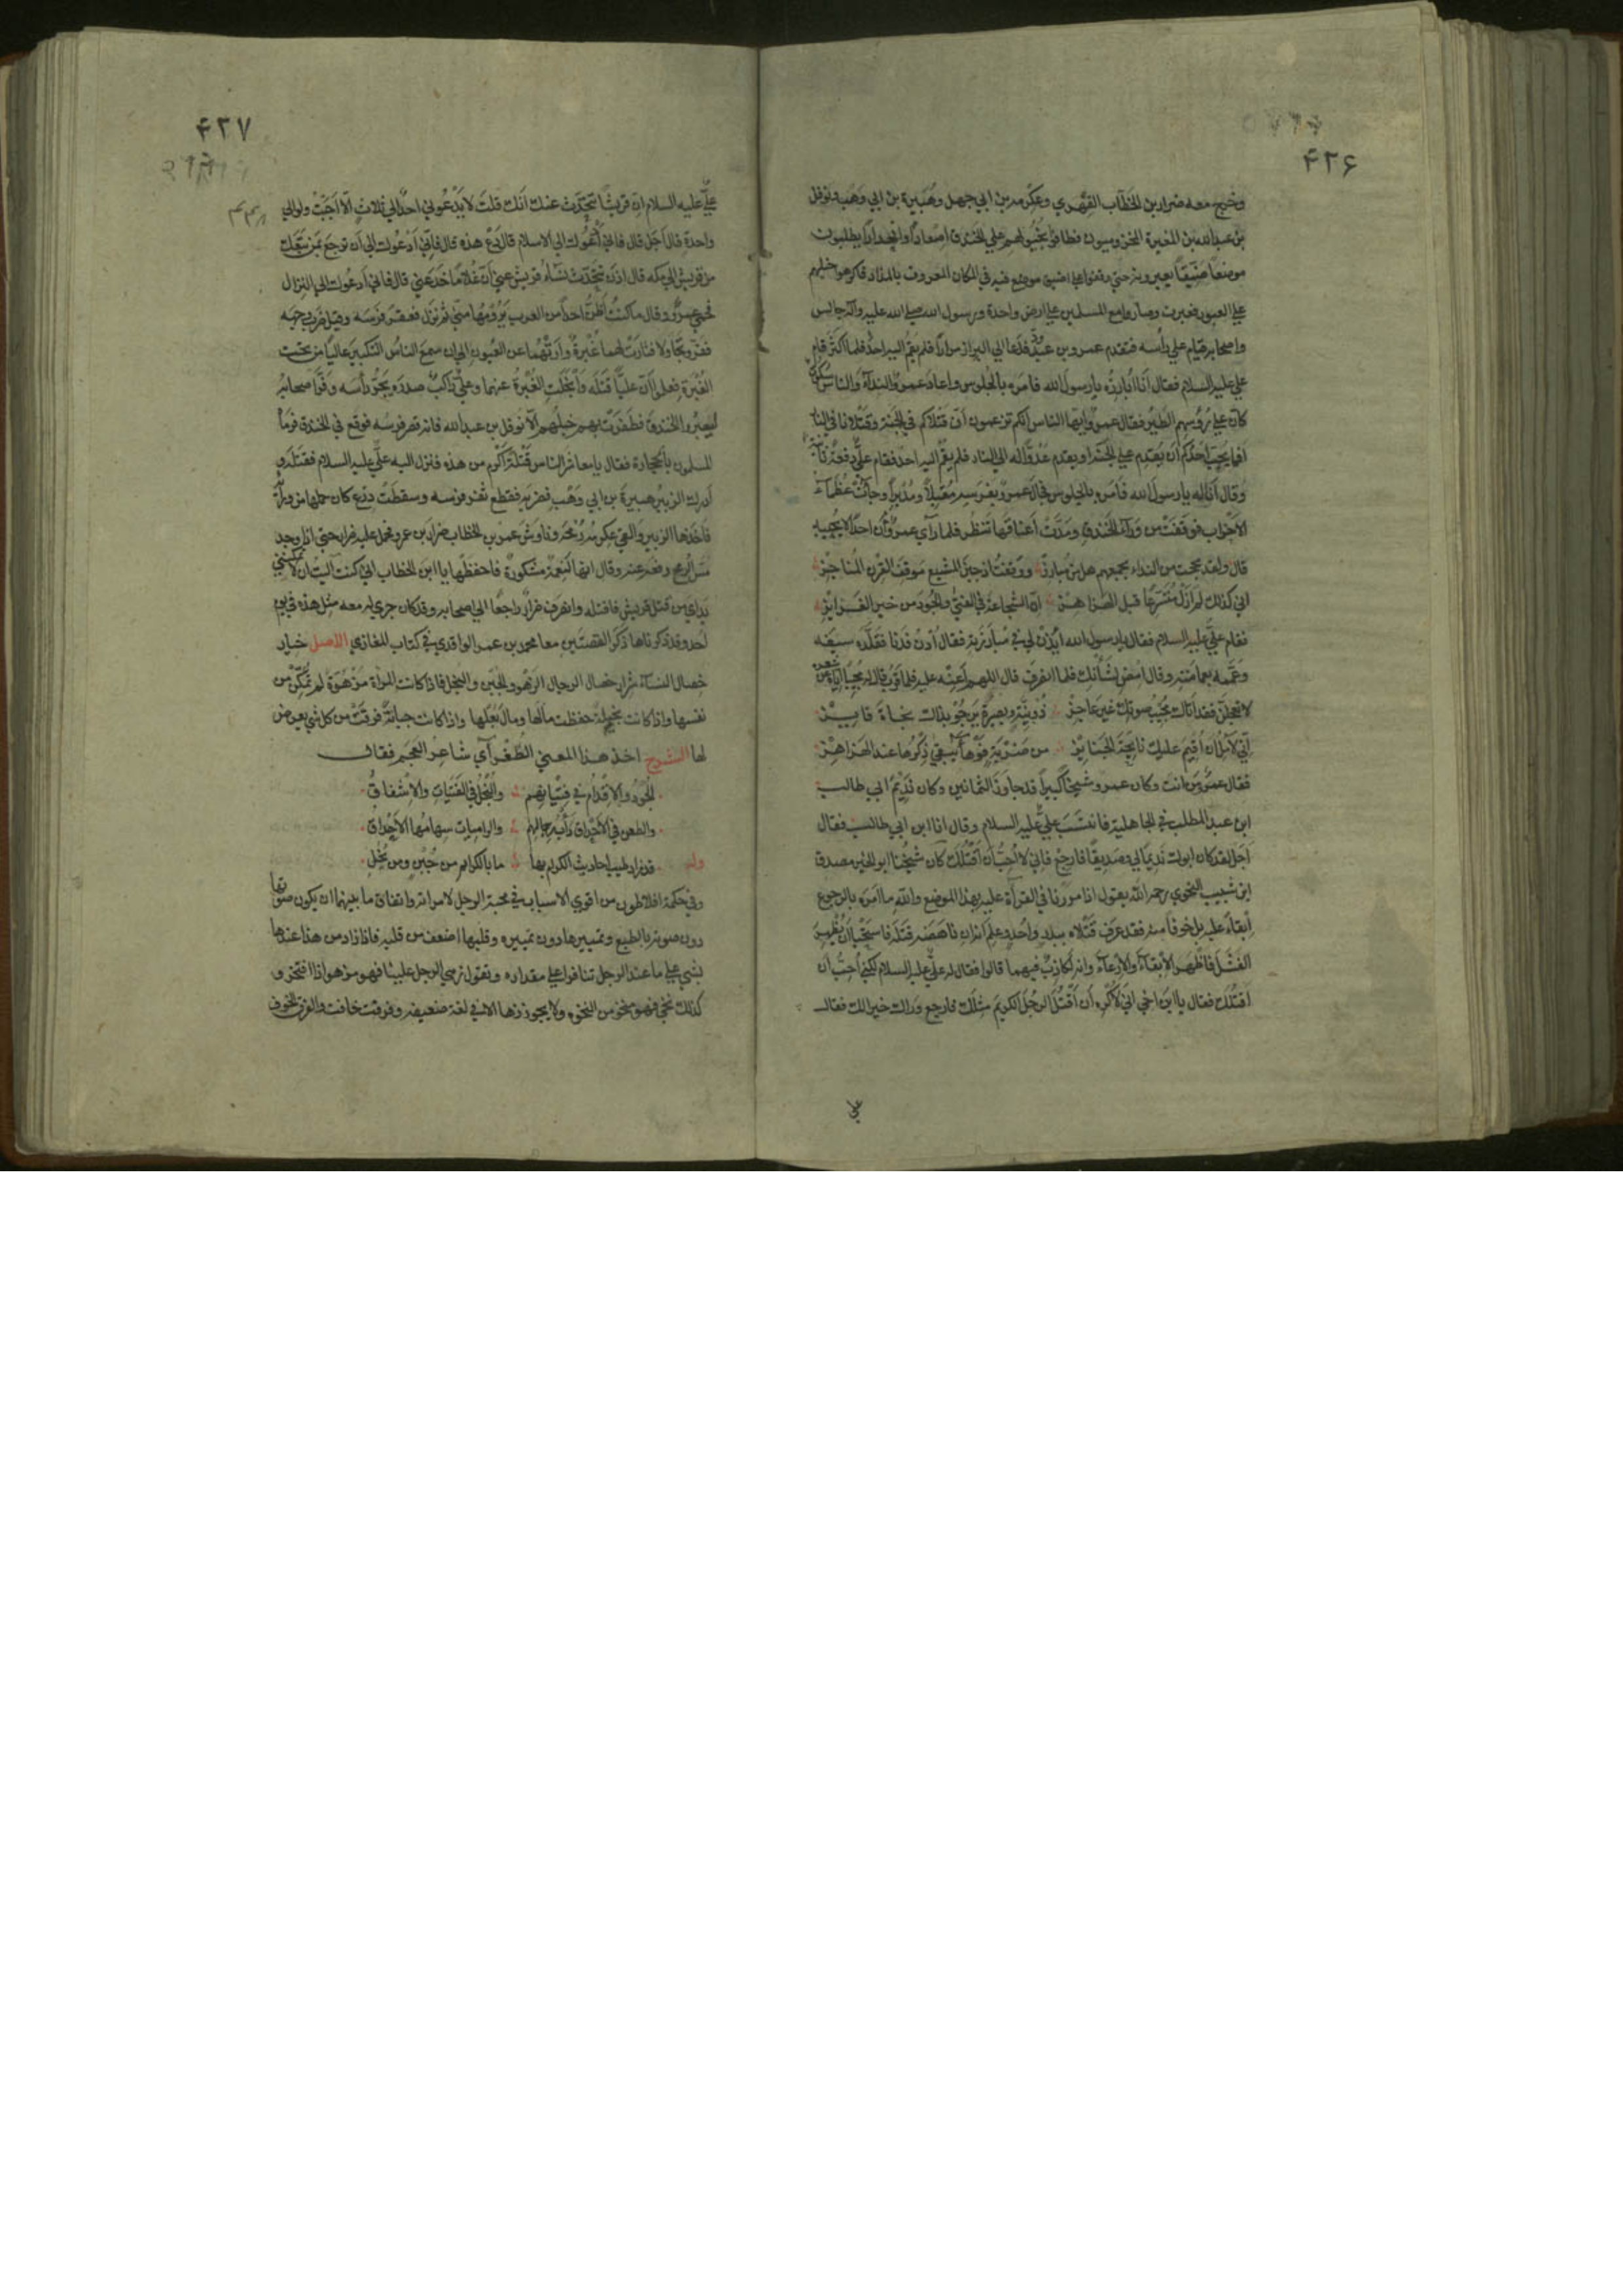 ۴۲۶
وخرج معه ضرار بن الخطّاب الفهري وعكرمة بن ابي جهل وهُبَيرة بن ابي وهَب ونوفل
بن عبدالله بن المغيرة المخزوميون فطافوا بخيولهم على الخندق اصعاداً وانحداراً يطلبون
موضعاً ضيّقاً يعبرونه حتى وقفوا على اضيق موضع فيه في المكان المعروف بالمذاد فاكرهوا خيلهم
على العبور فعبرت وصاروا مع المسلمين على ارض واحدة ورسول الله صلى الله عليه وآله جالس
واصحابه قيام على رأسه فتقدم عمرو بن عبدودّ فدعا الى البراز مراراً فلم يقم اليه احدٌ فلما اكثر قام
علي عليه السلام فقال أنا أبارزُه يا رسول الله فامره بالجلوس واعاد عمروٌ النداء والناس سكوتٌ
كانّ على رؤسهم الطير فقال عمروٌ ايها الناس انكم تزعمون أنّ قتلاكم في الجنة وقتلانا في النار
أفما يحبّ احدُكم أن يَقدَم على الجنة او يقدم عدوّاً له الى النار فلم يقم اليه احد فقام عليٌّ دفعةً ثانية
وقال أنا له يا رسول الله فأمره بالجلوس فجال عمروٌ بفرسه مُقبلاً ومُدبراً وجاءت عظماء
الأحزاب فوقفت من وراء الخندق ومدّت أعناقها تنظر فلما رأى عمروٌ أن احداً لا يُجيبه
قال ولقد بححت من النداء بجمعهم هل من مبارز ووقفتُ اذ جبن المشيع موقف القرن المناجز
اني كذلك لم أزل متسرعاً قبل الهزاهز انّ الشجاعة في الفتى والجود من خير الغرائز
فقام عليٌّ عليه السلام فقال يا رسول الله ايذن لي في مبارزته فقال أدن فدنا فقلّده سيفه
وعمّمه بعمامته وقال امض لشأنك فلما انصرف قال اللهم أعنه عليه فلما قرب قال له مجيباً اياه عن شعره
لا تعجلنّ فقد أتاك مجيب صوتك غير عاجز ذو نيّةٍ وبصيرةٍ يرجو بذاك نجاة فايز
اني لآمل أن أقيم عليك نايحة الجنايز من ضربةٍ فوهاء يبقى ذكرها عند الهزاهز
فقال عمروٌ من انت وكان عمرو شيخاً كبيراً قد جاوز الثمانين وكان نديم ابي طالب
ابن عبد المطلب في الجاهلية فانتسب عليٌّ عليه السلام وقال انا ابن ابي طالب فقال
اجل لقد كان ابوك نديماً لي وصديقاً فارجع فاني لا أحبّ أن أقتلك كان شيخنا ابو الخير مصدق
ابن شبيب النحوي رحمه الله يقول اذا مررنا في القرآءة عليه بهذا الموضع والله ما امره بالرجوع
ابقاءً عليه بل خوفاً منه فقد عرف قتلاه ببدر واُحُد وعلم انه ان ناهضه قتله فاستحيا ان يُظهر
الفشل فأظهر الابقاء والارعاء وانه لكاذبٌ فيهما قالوا فقال له عليٌّ عليه السلام لكني أحبّ ان
اقتلك فقال يا ابن اخي اني لأكره أن أقتل الرجل الكريم مثلك فارجع وراك خير لك فقال
۴۲۷
عليٌّ عليه السلام انّ قريشاً تتحدّث عنك أنك قلت لا يدعوني احدٌ الى ثلاثٍ الّا أجبت ولو الى
واحدة قال أجل قال فاني أدعوك الى الاسلام قال دع هذه قال فإنّي أدعوك الى أن ترجع بمن تبعك
من قريش الى مكه قال اذن تتحدّث نساء قريش عني أنّ غلاماً خدعني قال فاني أدعوك الى النزال
فحمي عمروٌ وقال ما كنت أظنّ احداً من العرب يرومها منّي ثم نزل فعقر فرسه وقيل ضرب وجهه
ففرّ وتجاولا فثارت لهما غبرةٌ وارتهما عن العيون الى ان سمع الناسُ التكبير عالياً من تحت
الغبرة فعلموا أنّ عليّاً قتله وانجلت الغبرةُ عنهما وعليٌّ راكبٌ صدره يحزّ رأسه وفرّ اصحابه
ليعبروا الخندق فطفرت بهم خيلهم الّا نوفل بن عبدالله فانه قصر فرسه فوقع في الخندق فرماه
المسلمون بالحجارة فقال يا معاشر الناس قتلةً أكرم من هذه فنزل اليه عليٌّ عليه السلام فقتله و
أدرك الزبير هبيرة بن ابي وهب فضربه فقطع ثفر فرسه وسقطت درع كان حملها من ورائه
فأخذها الزبير والقى عكرمة رمحه وناوش عمر بن الخطاب ضرار بن عمرو فحمل عليه ضرار حتى اذا وجد
مسّ الرمح رفعه عنه وقال انها لنعمةٌ مشكورة فاحفظها يا ابن الخطاب اني كنت آليت ان لا تمكنني
يداي من قتل قريشي فاقتله وانصرف ضرارٌ راجعاً الى اصحابه وقد كان جرى له معه مثل هذه في يوم
أحد وقد ذكرناها ذكر القصتين معا محمد بن عمر الواقدي في كتاب المغازي الاصل خيار
خصال النساء شرار خصال الرجال الزهو والجبن والبخل فاذا كانت المراة مزهوّة لم تمكّن من
نفسها واذا كانت بخيلة حفظت مالها ومال بعلها واذا كانت جبانةً فرقت من كل شيء يعرض
لها الشرح اخذ هذا المعنى الطغرآي شاعر العجم فقال
الجود والاقدام في فتيانهم والبخل في الفتيات والاشفاق
والطعن في الأحداق دأب رجالهم والراميات سهامها الأحداق
وله قد زاد طيب احاديث الكرام بها ما بالكرايم من جبنٍ ومن بخل
وفي حكمة افلاطون من اقوى الاسباب في محبة الرجل لامراته واتفاق ما بينهما ان يكون صوتها
دون صوته بالطبع وتمييزها دون تمييزه وقلبها اضعف من قلبه فاذا زاد من هذا عندها
شيء على ما عند الرجل تنافرا على مقداره وتقول زهي الرجل علينا فهو مزهو اذا افتخر و
كذلك نخي فهو منخو من النخوه ولا يجوز زها الا في لغة ضعيفه وفرقت خافت والفرق الخوف